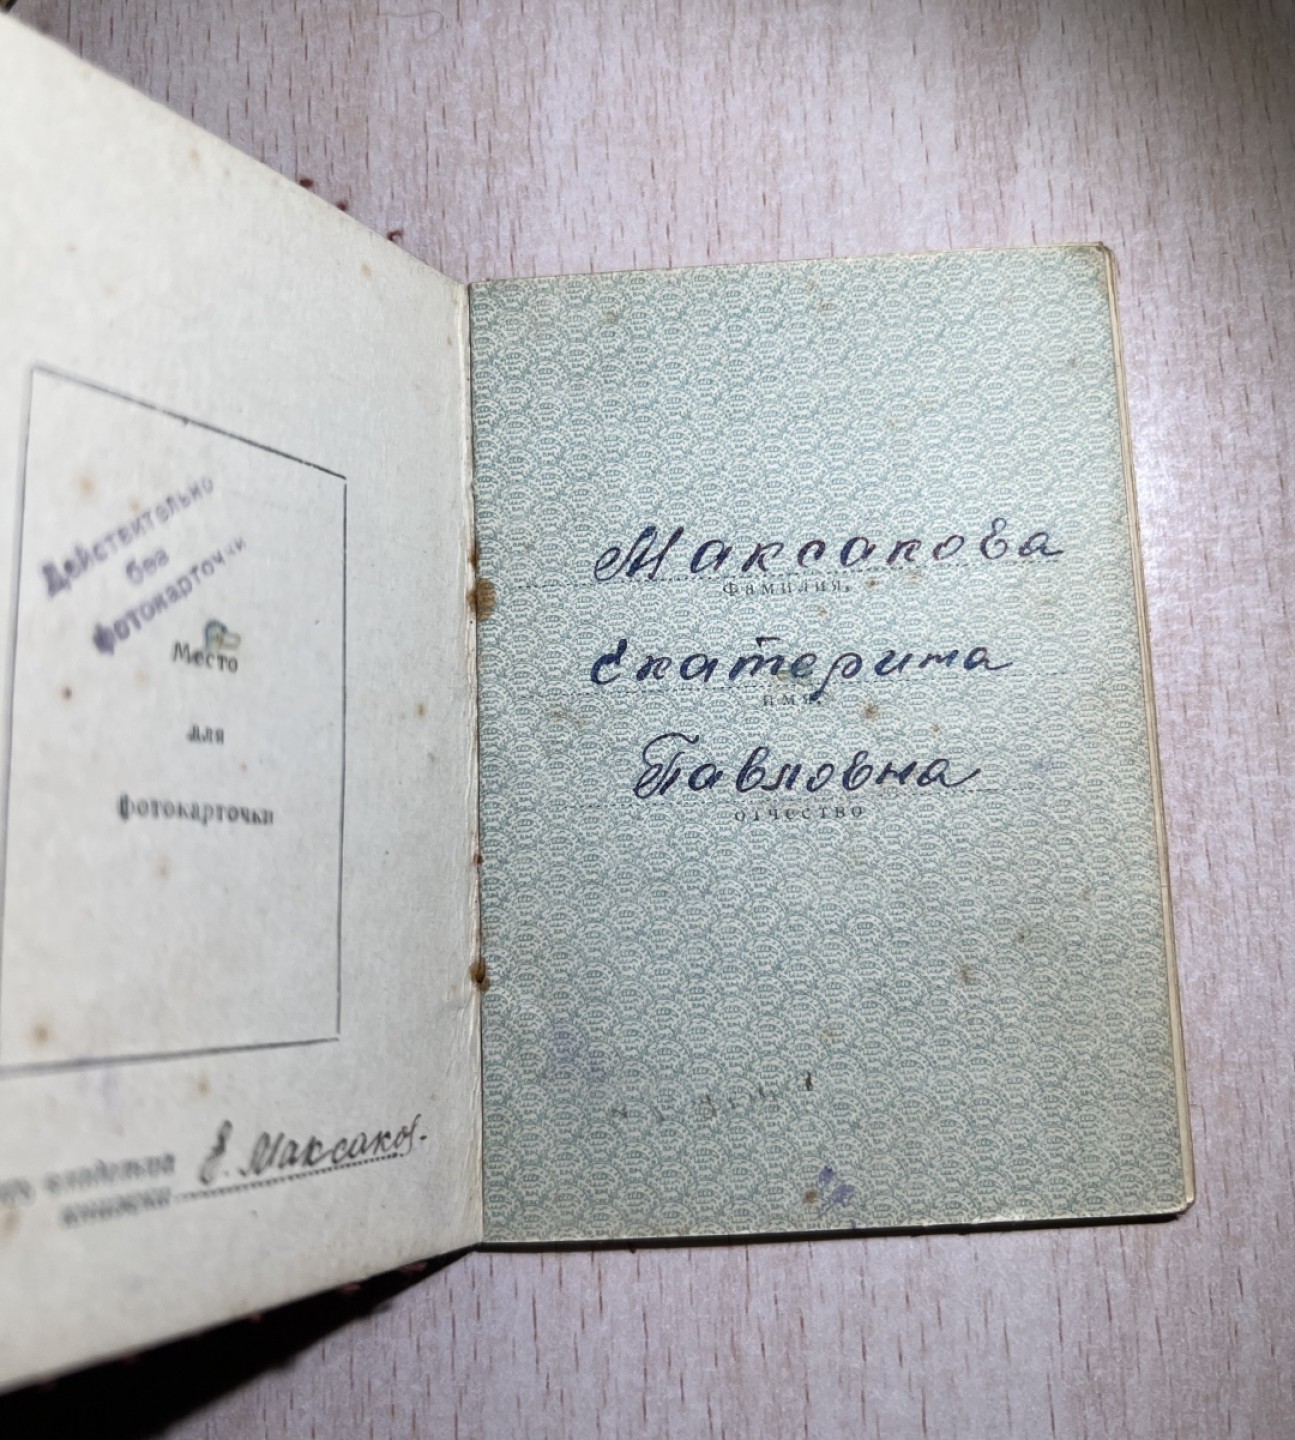 Действительно
без
фотокарточки
Место
для
фотокарточки
владельца Е. Максаков-
книжки
Максакова
фамилия,
Екатерина
имя,
Павловна
отчество